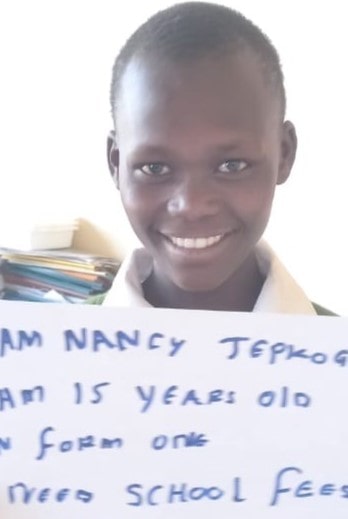 AM NANCY JEPKOG
AM 15 YEARS OLD
N FORM ONE
NEED SCHOOL FEES